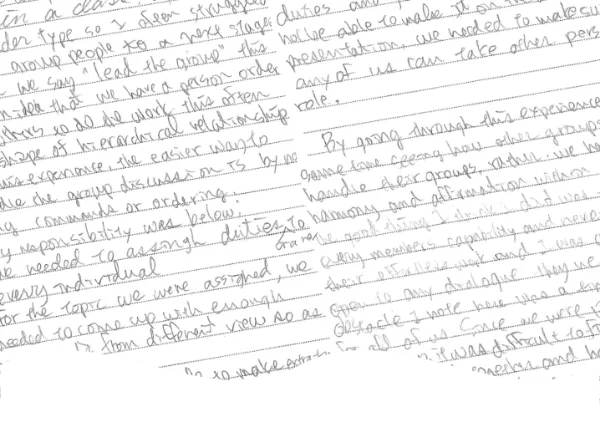 in a class
type so I often struggled
group people to a next stage.
we say "lead the group" this
idea that we have a person order
to do the work this often
shape of hierarchical relationship
experience, the easier way to
the group discussion is by
commands or ordering.
responsibility was below.
needed to assingh duties to
every individual
for the topic we were assigned, we
needed to come up with enough
from different view so as
to make
duties and
not be able to make it on
presentation, we needed to make
any of us can take other
role.
By going through this experience
seeing how other groups
handle their groups, rather, we
harmony and affirmation within
good thing I think I did was
every members capability and
their work and I was
open to any dialogue they
obstacle I note here was a
for all of us. Since we were
it was difficult to
and